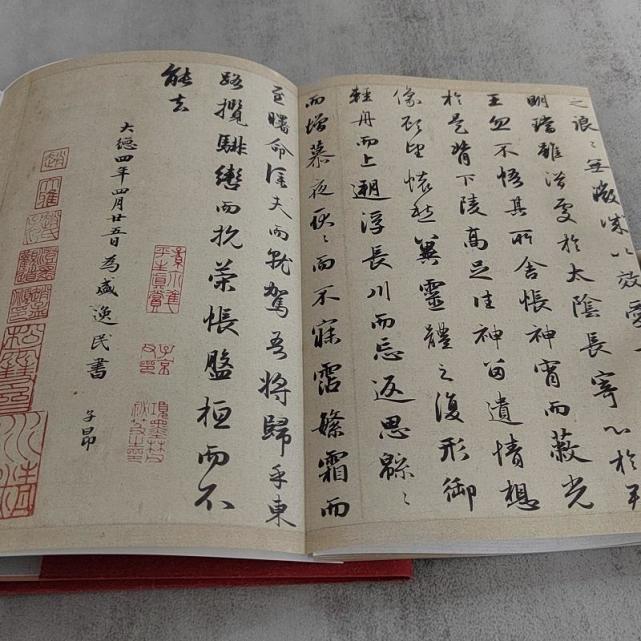 之浪〻無微以效愛
明璫雖潛處於太陰長寄心於君
王忽不悟其所舍悵神宵而蔽光
於是背下陵高足往神留遺情想
像顧望懷愁冀靈體之復形御
輕舟而上遡浮長川而忘返思緜〻
而增慕夜耿〻而不寐霑繁霜而
至曙命僕夫而就駕吾將歸乎東
路攬騑轡而抗策悵盤桓而不
能去
大德四年四月廿五日為盛逸民書
子昂
子京
項墨林
松雪齋